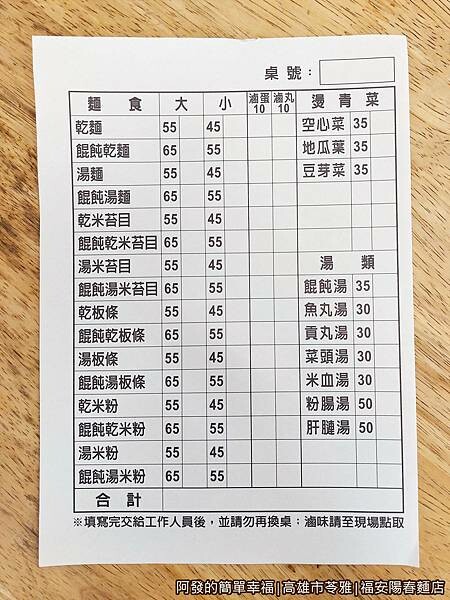 桌號：
麵食 大 小 滷蛋10 滷丸10 燙青菜
乾麵 55 45 空心菜 35
餛飩乾麵 65 55 地瓜葉 35
湯麵 55 45 豆芽菜 35
餛飩湯麵 65 55
乾米苔目 55 45
餛飩乾米苔目 65 55
湯米苔目 55 45 湯類
餛飩湯米苔目 65 55 餛飩湯 35
乾板條 55 45 魚丸湯 30
餛飩乾板條 65 55 貢丸湯 30
湯板條 55 45 菜頭湯 30
餛飩湯板條 65 55 米血湯 30
乾米粉 55 45 粉腸湯 50
餛飩乾米粉 65 55 肝腱湯 50
湯米粉 55 45
餛飩湯米粉 65 55
合計
※填寫完交給工作人員後，並請勿再換桌；滷味請至現場點取
阿發的簡單幸福|高雄市苓雅|福安陽春麵店